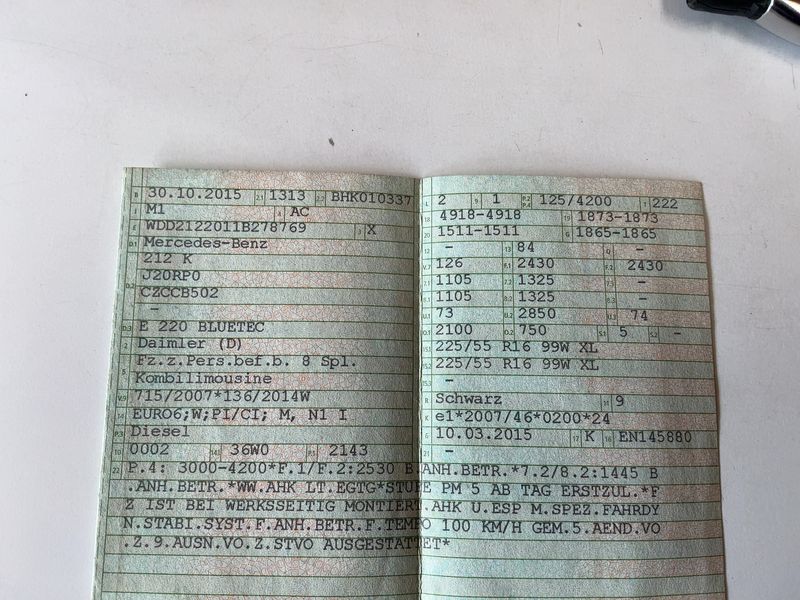 30.10.2015 2.1 1313 2.2 BHK010337
M1 4 AC
WDD2122011B278769 3 X
D.1 Mercedes-Benz
212 K
D.2 J20RP0
CZCCB502
-
D.3 E 220 BLUETEC
2 Daimler (D)
5 Fz.z.Pers.bef.b. 8 Spl.
Kombilimousine
V.9 715/2007*136/2014W
14 EURO6;W;PI/CI; M, N1 I
P.3 Diesel
10 0002 14.1 36W0 P.1 2143
L 2 9 1 P.2 P.4 125/4200 T 222
18 4918-4918 19 1873-1873
20 1511-1511 G 1865-1865
12 - 13 84 Q -
V.7 126 F.1 2430 F.2 2430
7.1 1105 7.2 1325 7.3 -
8.1 1105 8.2 1325 8.3 -
U.1 73 U.2 2850 U.3 74
O.1 2100 O.2 750 S.1 5 S.2 -
15.1 225/55 R16 99W XL
15.2 225/55 R16 99W XL
15.3 -
R Schwarz 11 9
K e1*2007/46*0200*24
6 10.03.2015 17 K 16 EN145880
21 -
22 P.4: 3000-4200*F.1/F.2:2530 B.ANH.BETR.*7.2/8.2:1445 B
.ANH.BETR.*WW.AHK LT.EGTG*STUFE PM 5 AB TAG ERSTZUL.*F
Z IST BEI WERKSSEITIG MONTIERT.AHK U.ESP M.SPEZ.FAHRDY
N.STABI.SYST.F.ANH.BETR.F.TEMPO 100 KM/H GEM.5.AEND.VO
.Z.9.AUSN.VO.Z.STVO AUSGESTATTET*